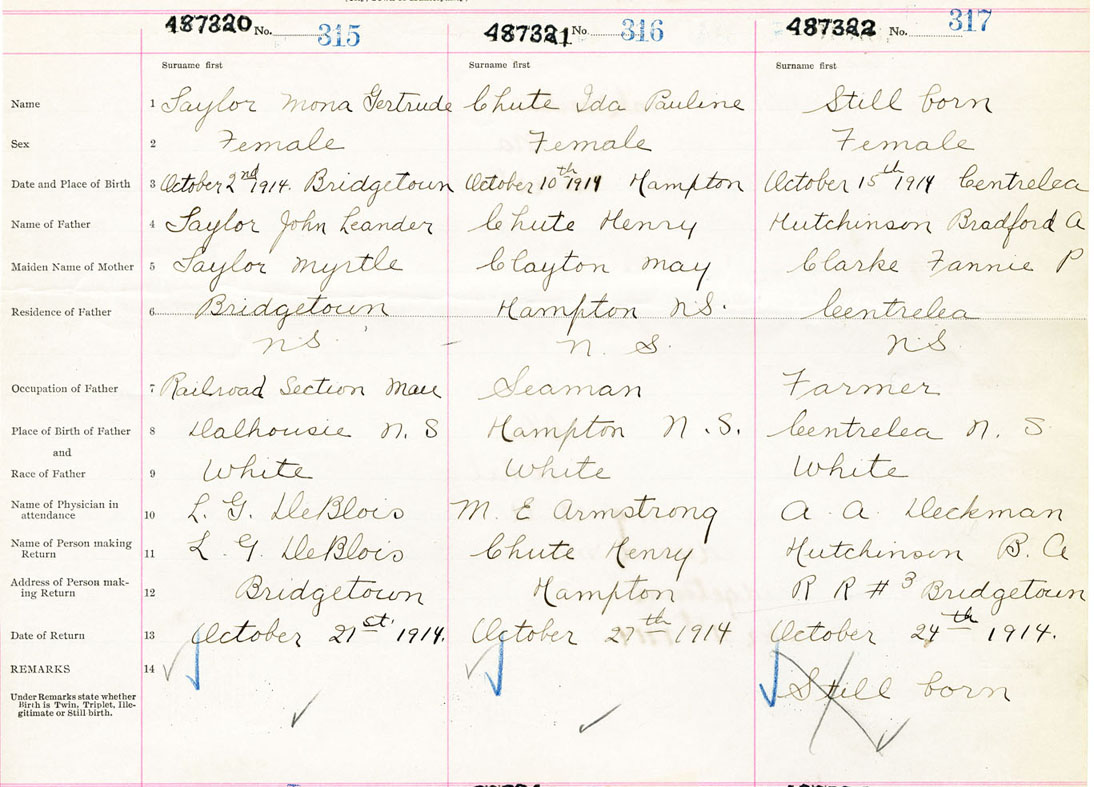 487320 No. 315 487321 No. 316 487322 No. 317
Surname first Surname first Surname first
Name 1 Saylor Mona Gertrude Chute Ida Pauline Still born
Sex 2 Female Female Female
Date and Place of Birth 3 October 2nd 1914. Bridgetown October 10th 1914 Hampton October 15th 1914 Centrelea
Name of Father 4 Saylor John Leander Chute Henry Hutchinson Bradford A
Maiden Name of Mother 5 Saylor Myrtle Clayton May Clarke Fannie P
Residence of Father 6 Bridgetown Hampton N.S. Centrelea
N S N. S. N S
Occupation of Father 7 Railroad Section Man Seaman Farmer
Place of Birth of Father 8 Dalhousie N. S Hampton N. S. Centrelea N. S
and
Race of Father 9 White White White
Name of Physician in
attendance 10 L. G. DeBlois M. E Armstrong A. A. Deckman
Name of Person making
Return 11 L. G. DeBlois Chute Henry Hutchinson B. A
Address of Person mak-
ing Return 12 Bridgetown Hampton R R # 3 Bridgetown
Date of Return 13 October 21st 1914. October 27th 1914 October 24th 1914.
REMARKS 14
Under Remarks state whether
Birth is Twin, Triplet, Ille-
gitimate or Still birth. Still born